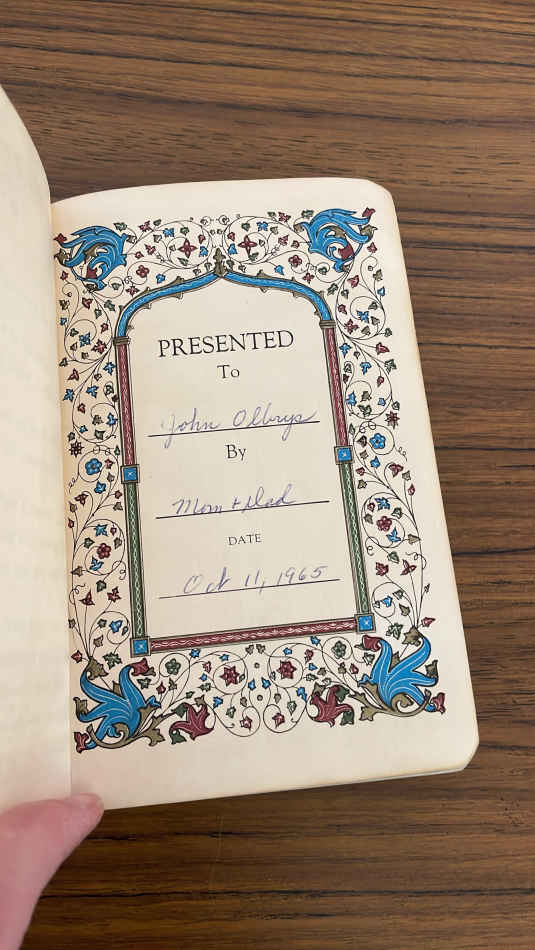 PRESENTED
To
John Olbrys
By
Mom + Dad
DATE
Oct 11, 1965